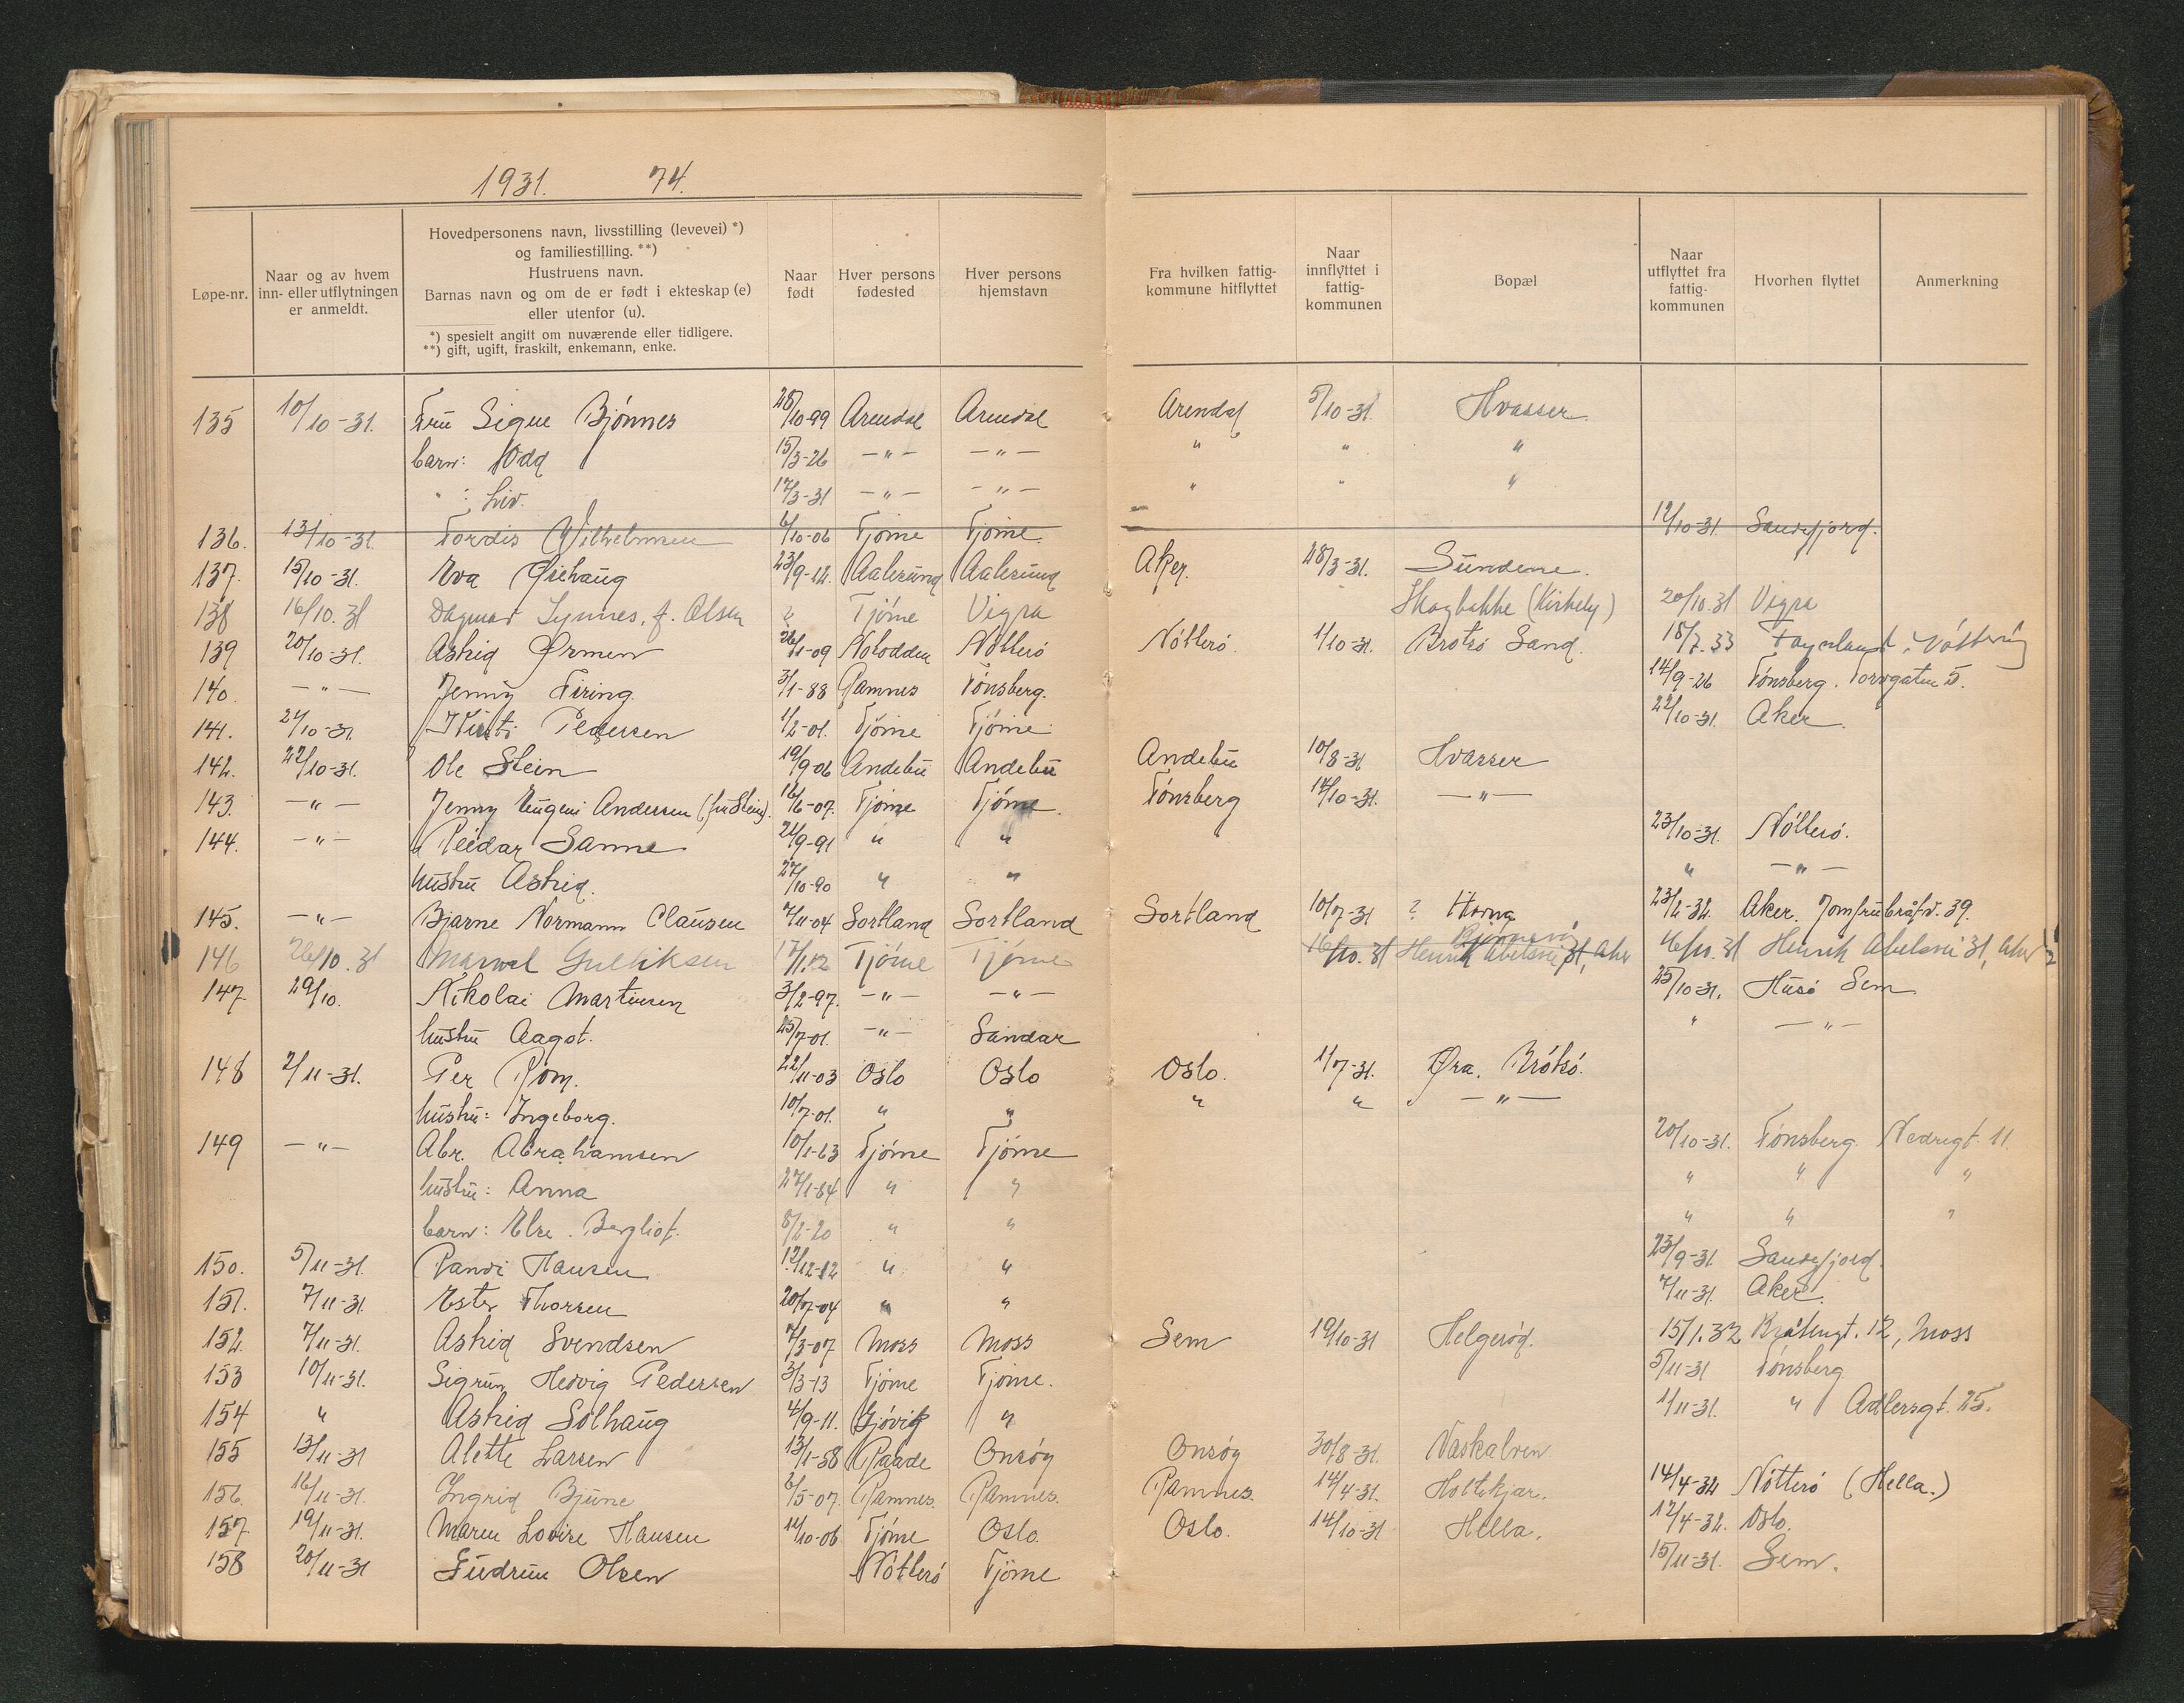 1931. 74.
Løpe-nr. | Naar og av hvem inn- eller utflytningen er anmeldt. | Hovedpersonens navn, livsstilling (levevei) *) og familiestilling. **) Hustruens navn. Barnas navn og om de er født i ekteskap (e) eller utenfor (u). *) spesielt angitt om nuværende eller tidligere. **) gift, ugift, fraskilt, enkemann, enke. | Naar født | Hver persons fødested | Hver persons hjemstavn | Fra hvilken fattig-kommune hitflyttet | Naar innflyttet i fattig-kommunen | Bopæl | Naar utflyttet fra fattig-kommunen | Hvorhen flyttet | Anmerkning
135 10/10-31. Fru Signe Bjönnes 28/10-99 Arendal Arendal Arendal 5/10-31. Hvasser
barn: Odd 15/3-26 —"— —"— " " "
" : Liv. 17/3-31 —"— —"— " " "
136. 13/10-31. Tordis Wilhelmsen 6/10-06 Tjöme Tjöme. 12/10-31. Sandefjord.
137. 15/10-31. Eva Öiehaug 23/9-12. Aalesund Aalesund Aker. 28/3-31. Sundene.
138 16/10.31 Dagmar Synnes, f. Olsen ? Tjöme Vigra Skogbakke (Kirkely) 20/10.31 Vigra
139 20/10-31. Astrid Ormen 26/1-09 Notodden Nötterö Nötterö. 1/10-31. Brotsö Sand. 18/7.33 Föynland, Nötterö
140. —"— Jenny Firing. 3/1-88 Ramnes Tönsberg. 14/9-26 Tönsberg. Torvgaten 5.
141. 21/10-31. Kirsti Pedersen 1/2-01. Tjöme Tjöme. 22/10-31. Aker.
142. 22/10-31. Ole Stein 19/9-06 Andebu Andebu Andebu 10/8-31 Hvasser
143. —"— Jenny Eugeni Andersen (fru Stein). 16/6-07. Tjöme Tjöme. Tönsberg 17/10-31. —"—
144. —"— Reidar Sanne 21/9-91 " " 23/10-31. Nötterö.
hustru Astrid. 27/10-90 " " " —"—
145. —"— Bjarne Normann Clausen 7/11-04 Sortland Sortland Sortland 10/7-31 ? 23/2-32. Aker. Jomfrubråtv. 39.
146 26/10.31 Marvel Gulliksen 17/1.12 Tjöme Tjöme 16/10.31 Henrik 31, Aker 16/10.31 Henrik 31, Aker
147. 29/10. Nikolai Martinsen 3/2-97. —"— —"— 25/10-31. Husö Sem
hustru Aagot. 25/7-01. —"— Sandar " —"—
148 2/11-31. Per Röm. 22/11-03 Oslo Oslo Oslo. 1/7-31. Øra. Brötsö.
hustru: Ingeborg. 10/7-01. " " " " —"—
149 —"— Abr. Abrahamsen 10/1-63 Tjöme Tjöme 20/10-31. Tönsberg. Nedregt. 11.
hustru: Anna 27/1-64 " " " " "
barn: Else. Bergliot. 8/2-20 " " " " "
150. 5/11-31. Randi Hansen 12/12-12 " " 23/9-31 Sandefjord.
151. 7/11-31. Ester Thorsen 20/7-04 " " 7/11-31. Aker.
152. 7/11-31. Astrid Svendsen 7/3-07 Moss Moss Sem 19/10-31 Helgeröd. 15/1.32 12, Moss
153 10/11-31. Sigrun Hedvig Pedersen 3/3-13 Tjöme Tjöme. 5/11-31 Tönsberg.
154 " Astrid Solhaug 4/9-11. Gjövik " 1/11-31. " Adlersgt. 25.
155 13/11-31 Alette Larsen 13/1-58 Raade Onsöy Onsöy 30/8-31. Vaskalven
156. 16/11-31. Ingrid Bjune 6/5-07. Ramnes. Ramnes. Ramnes. 14/4-31. Holtekjær. 14/4-32 Nötterö (Hella.)
157 19/11-31. Maren Lovise Hansen 11/10-06 Tjöme Oslo. Oslo. 14/10-31 Hella. 12/4-32. Oslo.
158 20/11-31 Gudrun Olsen Nötterö Tjöme 15/11-31. Sem.